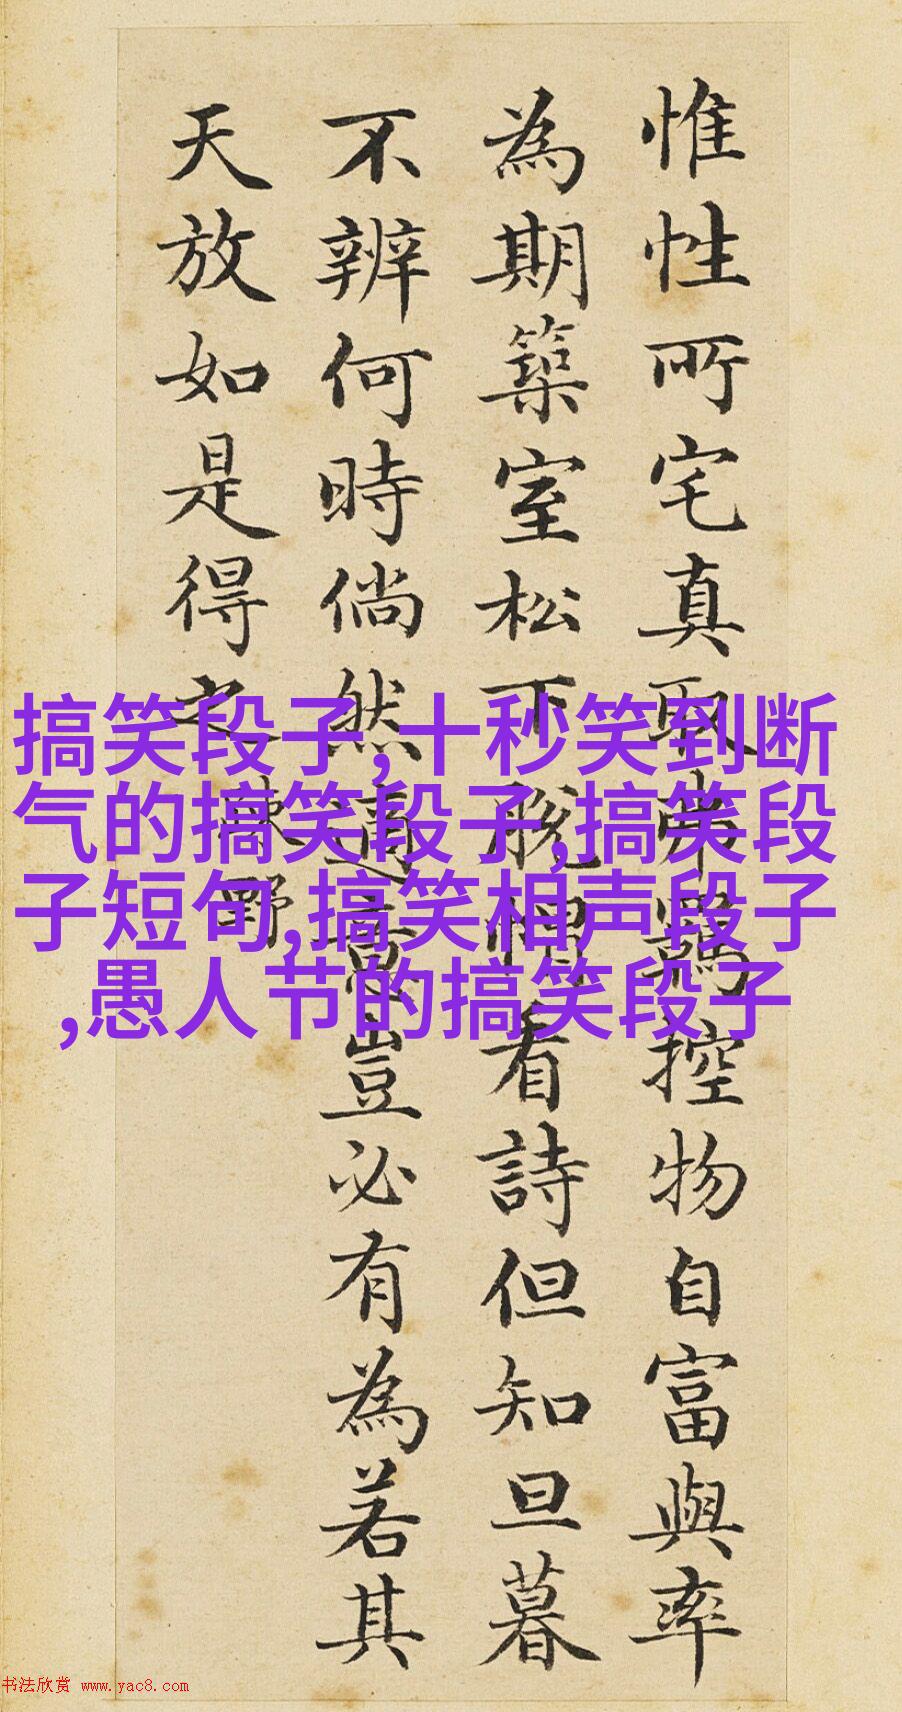 惟性所宅真取弗羈控物自富與率
為期築室松下脱帽看詩但知旦暮
不辨何時倘然適意豈必有為若其
天放如是得之 疎野
搞笑段子,十秒笑到断
气的搞笑段子,搞笑段
子短句,搞笑相声段子
,愚人节的搞笑段子
书法欣赏 www.yac8.com